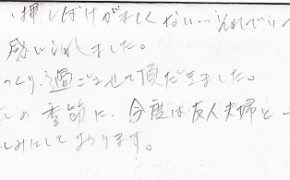 押しつけがましくない…それでい
感じられました。
っくり、過ごさせて頂だきました。
の季節に、今度は友人夫婦と一
しみにしております。